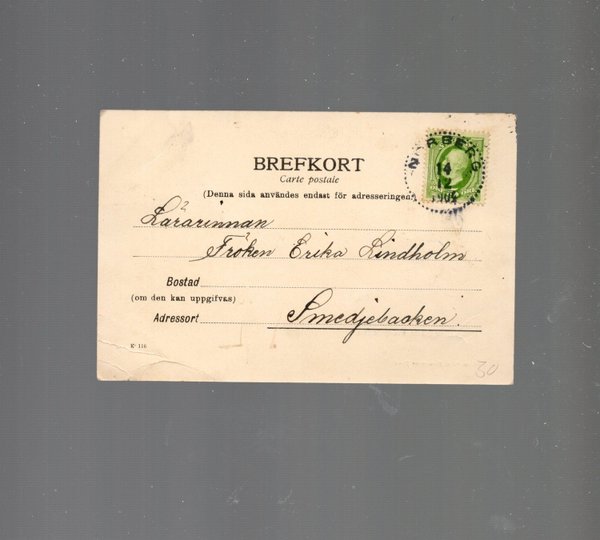 BREFKORT
Carte postale
(Denna sida användes endast för adresseringen
NORBERG
14
12
Lärarinnan
Fröken Erika Lindholm
Bostad
(om den kan uppgifvas)
Adressort
Smedjebacken.
K 116
30